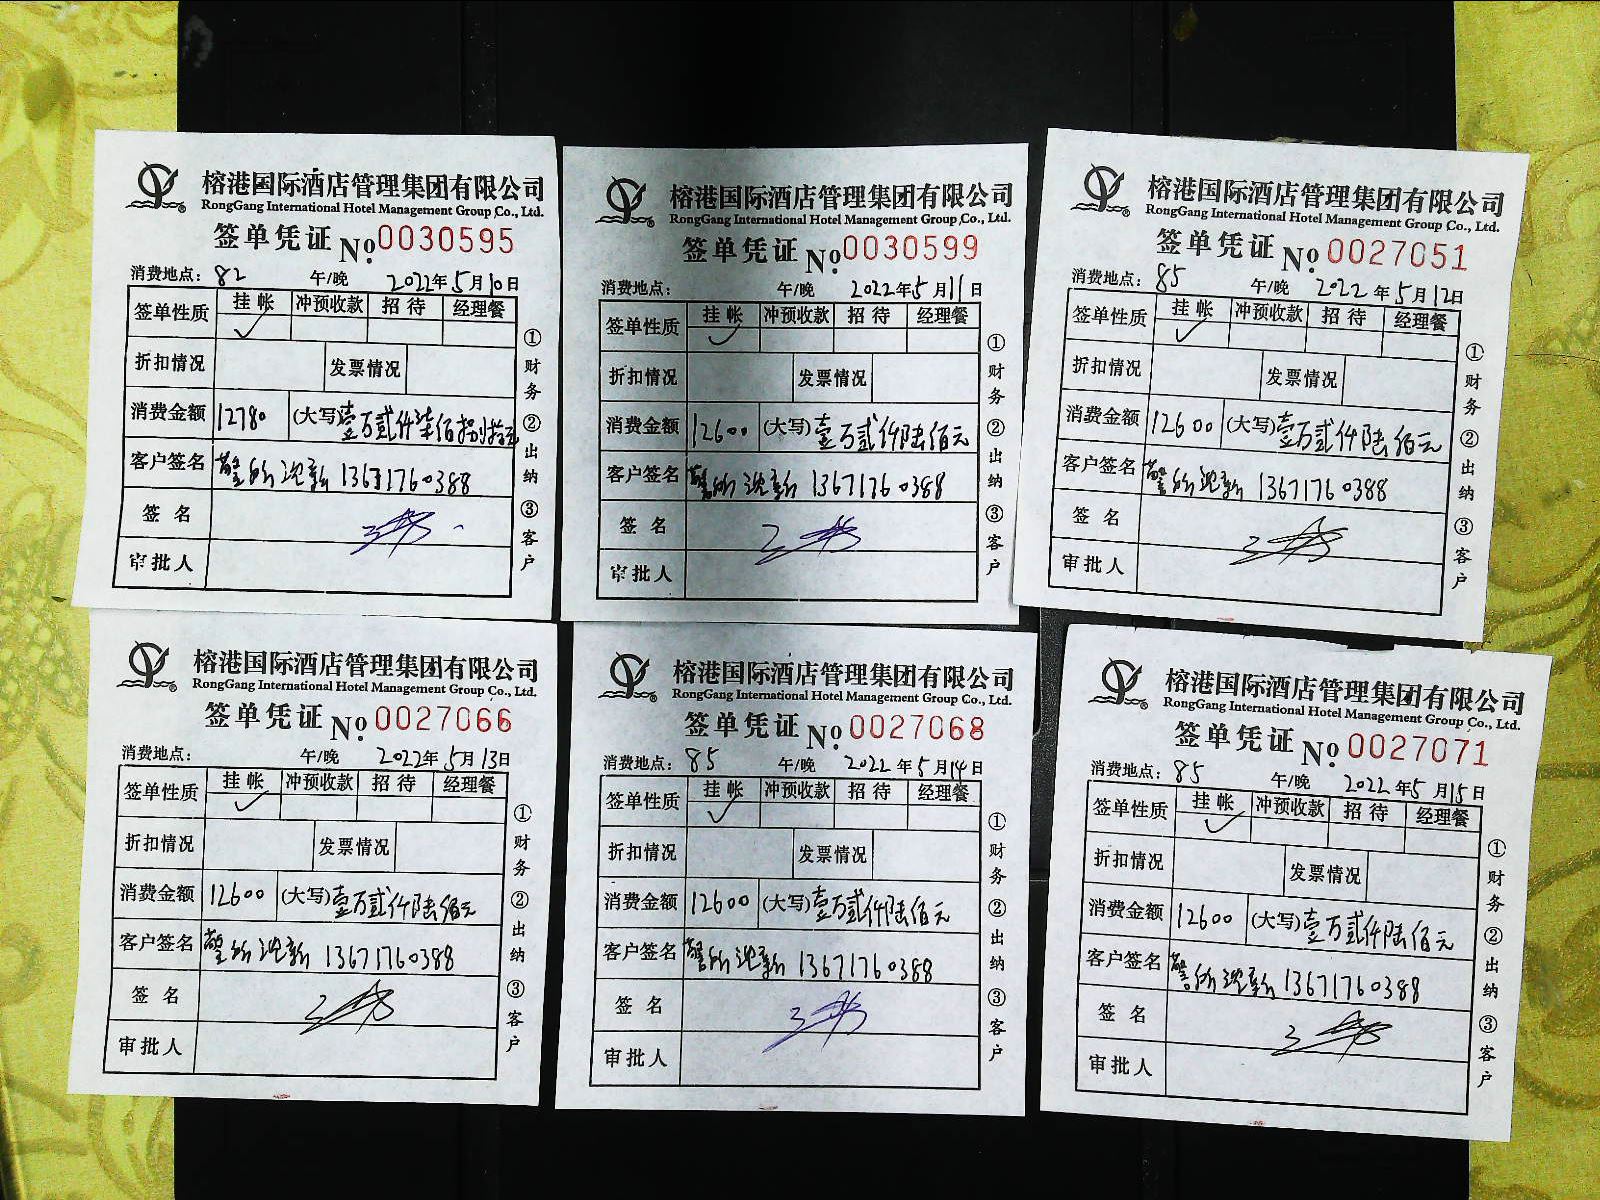 榕港国际酒店管理集团有限公司
RongGang International Hotel Management Group Co., Ltd.
签单凭证 No. 0030595
消费地点: 82 午/晚 2022年5月10日
签单性质 挂帐 冲预收款 招待 经理餐
✓
折扣情况 发票情况
消费金额 12780 (大写)壹万贰仟柒佰捌拾元
客户签名 13671760388
签名
审批人
①财务 ②出纳 ③客户
榕港国际酒店管理集团有限公司
RongGang International Hotel Management Group Co., Ltd.
签单凭证 No. 0030599
消费地点: 午/晚 2022年5月11日
签单性质 挂帐 冲预收款 招待 经理餐
✓
折扣情况 发票情况
消费金额 12600 (大写)壹万贰仟陆佰元
客户签名 13671760388
签名
审批人
①财务 ②出纳 ③客户
榕港国际酒店管理集团有限公司
RongGang International Hotel Management Group Co., Ltd.
签单凭证 No. 0027051
消费地点: 85 午/晚 2022年5月12日
签单性质 挂帐 冲预收款 招待 经理餐
✓
折扣情况 发票情况
消费金额 12600 (大写)壹万贰仟陆佰元
客户签名 13671760388
签名
审批人
①财务 ②出纳 ③客户
榕港国际酒店管理集团有限公司
RongGang International Hotel Management Group Co., Ltd.
签单凭证 No. 0027066
消费地点: 午/晚 2022年5月13日
签单性质 挂帐 冲预收款 招待 经理餐
✓
折扣情况 发票情况
消费金额 12600 (大写)壹万贰仟陆佰元
客户签名 13671760388
签名
审批人
①财务 ②出纳 ③客户
榕港国际酒店管理集团有限公司
RongGang International Hotel Management Group Co., Ltd.
签单凭证 No. 0027068
消费地点: 85 午/晚 2022年5月14日
签单性质 挂帐 冲预收款 招待 经理餐
✓
折扣情况 发票情况
消费金额 12600 (大写)壹万贰仟陆佰元
客户签名 13671760388
签名
审批人
①财务 ②出纳 ③客户
榕港国际酒店管理集团有限公司
RongGang International Hotel Management Group Co., Ltd.
签单凭证 No. 0027071
消费地点: 85 午/晚 2022年5月15日
签单性质 挂帐 冲预收款 招待 经理餐
✓
折扣情况 发票情况
消费金额 12600 (大写)壹万贰仟陆佰元
客户签名 13671760388
签名
审批人
①财务 ②出纳 ③客户